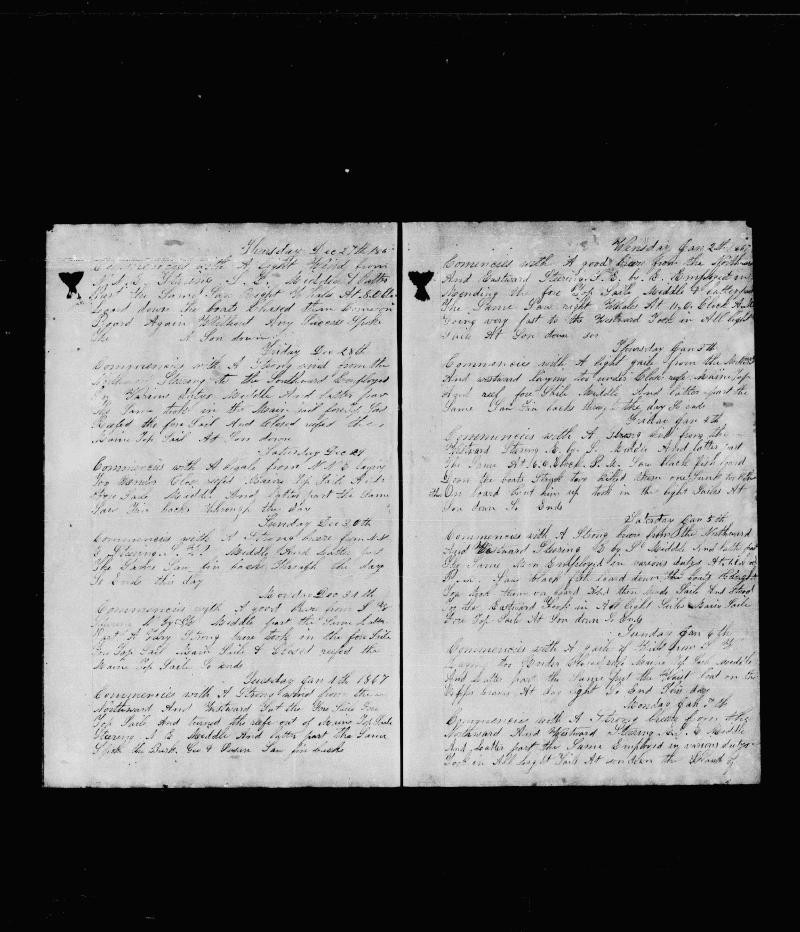 Thursday Dec 27th 186
Commences with A Light Wind from
N.N.E Stering S.E. Middle & Latter
part the Same Saw Right Whale At 8.O.Clo
down the boats Chased them Come on
Board Again Without Any Success Spoke
The A Son down
Friday Dec 28th
Commencies with A Strong wind from the
Northward Stering to the Southward Employed
In Various dutys Middle And latter part
the Same took in the Main sail
Reefed the fore Sail And Closed reefed the
Maine Top Sail At Son down
Saturday Dec 29
Commencies with A gale from N N E laying
Too Under Close reefed Maine Top Sail And
Fore Sail Middle And latter part the Same
Saw Fin backs through the day
Sunday Dec 30th
Commencies with A Strong breze from N.N.
E Stering S.E. Middle And Latter part
The Same Saw fin back Through the day
So Ends this day
Monday Dec 31th
Commencies with A good breze from S W
Stering by Middle part the Same Latter
Part A Vary Strong breze took in the fore Sail
Fore Top Sail Main Sail & Closet reefed the
Maine Top Sail So ends
Tuesday Jan 1th 1867
Commencies with A Strong wind from the
Northward And Westward Put the Fore Sail Fore
Top Sail And turned the reefs out of Maine Top Sail
Stering S E Middle And latter part the Same
Spok the Bark Saw fin backs
Wensday Jan 2th 1867
Comencies with A good breze from the Northward
And Eastward Stering S.E. by E. Employed in
Mending the fore Top Saile Middle & latter part
The Same Saw right Whales At 11.O.Clock A.M.
Going very fast to the Westward Took in All light
Sails At Son down
Thursday Jan 3th
Commencies with A light gale from the
And westward laying too under Close reefe Maine Top
And reef fore Saile Middle And latter part the
Same Saw Fin backs through the day So ends
Friday Jan 4th
Commencies with A strong wind from the
Westward Stering E. by S. Middle And latter part
The Same At O.Clock P.M. Saw black fish lowed
Down the boats Struck two killed them one Sunk took the
On board Cut him up took in the light Sailes At
Son down So Ends
Saturday Jan 5th
Commencies with A Strong breze from the Northward
And Westward Stering E by S Middle And latter part
The Same Men Employed in various dutys At
P.M. Saw black fish lowed down the boats
Two took them on board And then made Saile And Stood
To the Eastward Took in All light Sailes Main Saile
Fore Top Saile At Son down So Ends
Sunday Jan 6th
Commencies with A gale of Wind from S W
Laying too Under Close reefe Maine Top Saile Middle
And Latter part the Same
At day light So End This day
Monday Jan 7th
Commencies with A Strong breeze from the
Northward And Westward Stering E Middle
And Latter part the Same Employed in various dutys
Took in All light Sails At son down the Island of